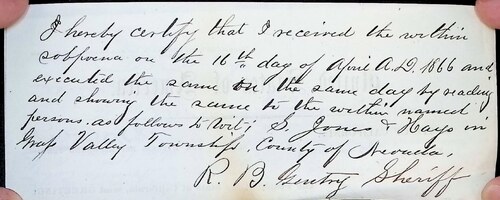 I hereby certify that I received the within
sobpoena on the 16th day of April A.D. 1866 and
executed the same on the same day by reading
and showing the same to the within named
persons. as follows to wit; S. Jones & Hays in
Grass Valley Township. County of Nevada.
R. B. Gentry Sheriff